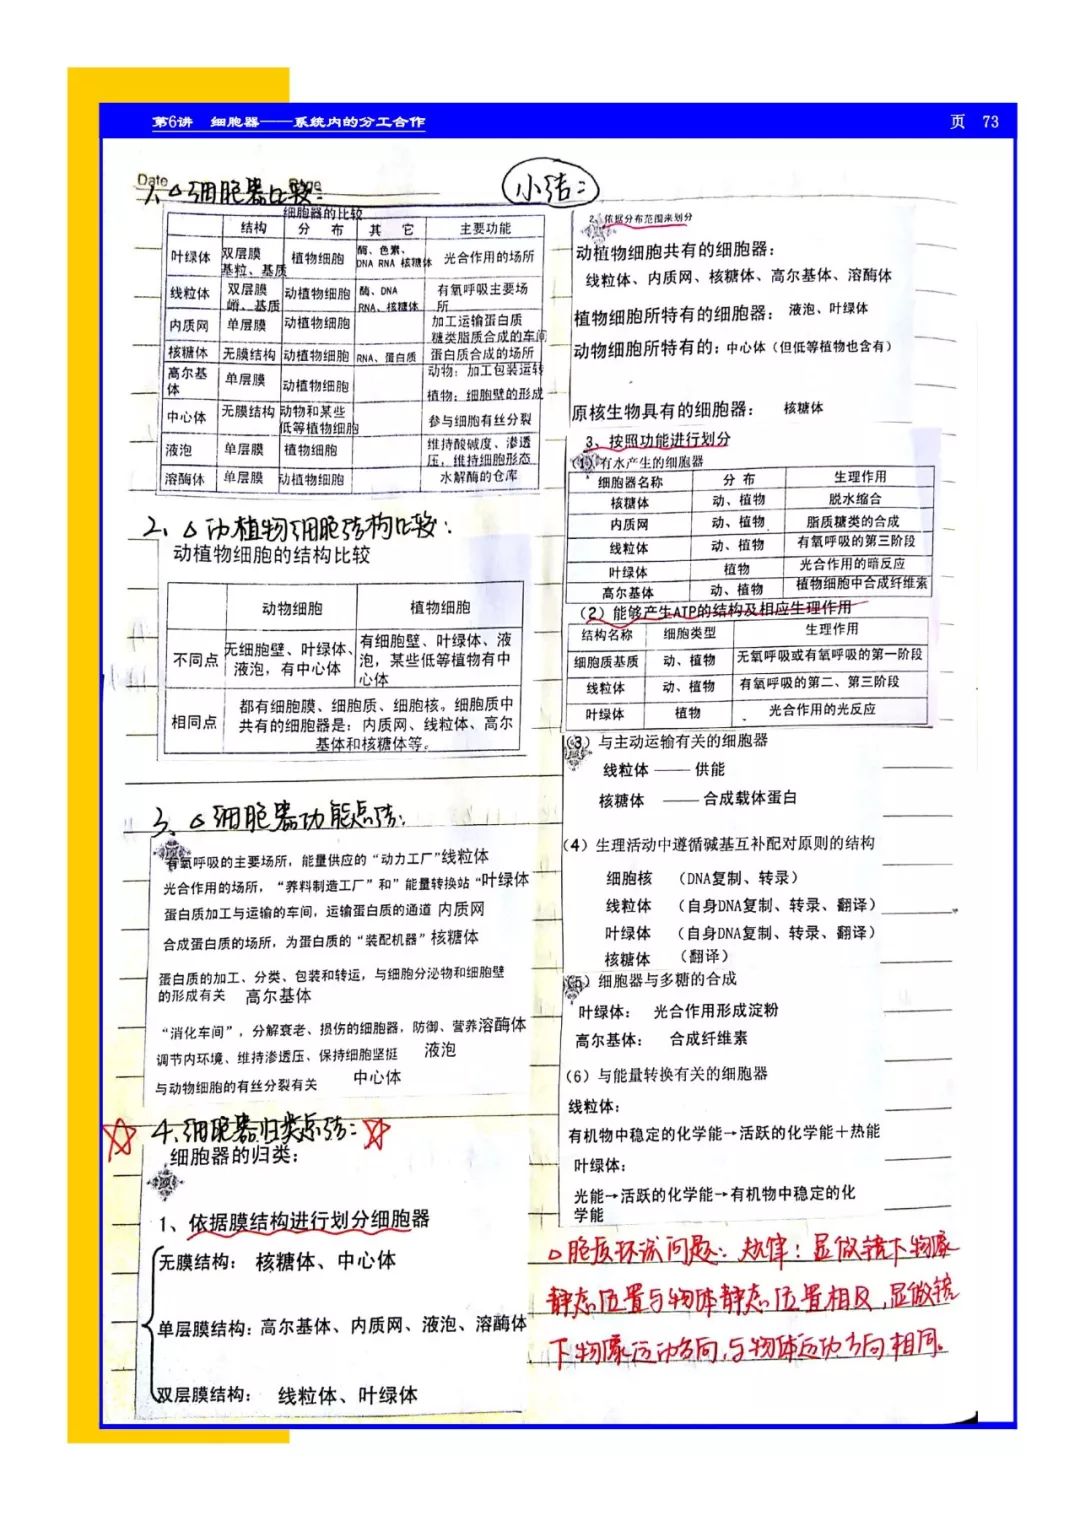 第6讲 细胞器——系统内的分工合作
页 73
Date
Page
小结:
1、△细胞器比较:
细胞器的比较
结构 分 布 其 它 主要功能
叶绿体 双层膜 基粒、基质 植物细胞 酶、色素、DNA RNA 核糖体 光合作用的场所
线粒体 双层膜 嵴、基质 动植物细胞 酶、DNA RNA、核糖体 有氧呼吸主要场所
内质网 单层膜 动植物细胞 加工运输蛋白质 糖类脂质合成的车间
核糖体 无膜结构 动植物细胞 RNA、蛋白质 蛋白质合成的场所
高尔基体 单层膜 动植物细胞 动物:加工包装运转 植物:细胞壁的形成
中心体 无膜结构 动物和某些低等植物细胞 参与细胞有丝分裂
液泡 单层膜 植物细胞 维持酸碱度、渗透压,维持细胞形态
溶酶体 单层膜 动植物细胞 水解酶的仓库
2、△动植物细胞结构比较:
动植物细胞的结构比较
动物细胞 植物细胞
不同点 无细胞壁、叶绿体、液泡,有中心体 有细胞壁、叶绿体、液泡,某些低等植物有中心体
相同点 都有细胞膜、细胞质、细胞核。细胞质中共有的细胞器是:内质网、线粒体、高尔基体和核糖体等。
3、△细胞器功能总结:
有氧呼吸的主要场所,能量供应的“动力工厂”线粒体
光合作用的场所,“养料制造工厂”和”能量转换站“叶绿体
蛋白质加工与运输的车间,运输蛋白质的通道 内质网
合成蛋白质的场所,为蛋白质的“装配机器”核糖体
蛋白质的加工、分类、包装和转运,与细胞分泌物和细胞壁
的形成有关 高尔基体
“消化车间”,分解衰老、损伤的细胞器,防御、营养溶酶体
调节内环境、维持渗透压、保持细胞坚挺 液泡
与动物细胞的有丝分裂有关 中心体
4、细胞器归类总结:
细胞器的归类:
1、依据膜结构进行划分细胞器
无膜结构: 核糖体、中心体
单层膜结构:高尔基体、内质网、液泡、溶酶体
双层膜结构: 线粒体、叶绿体
2、依据分布范围来划分
动植物细胞共有的细胞器:
线粒体、内质网、核糖体、高尔基体、溶酶体
植物细胞所特有的细胞器: 液泡、叶绿体
动物细胞所特有的:中心体(但低等植物也含有)
原核生物具有的细胞器: 核糖体
3、按照功能进行划分
(1)有水产生的细胞器
细胞器名称 分 布 生理作用
核糖体 动、植物 脱水缩合
内质网 动、植物 脂质糖类的合成
线粒体 动、植物 有氧呼吸的第三阶段
叶绿体 植物 光合作用的暗反应
高尔基体 动、植物 植物细胞中合成纤维素
(2)能够产生ATP的结构及相应生理作用
结构名称 细胞类型 生理作用
细胞质基质 动、植物 无氧呼吸或有氧呼吸的第一阶段
线粒体 动、植物 有氧呼吸的第二、第三阶段
叶绿体 植物 光合作用的光反应
(3)与主动运输有关的细胞器
线粒体 —— 供能
核糖体 —— 合成载体蛋白
(4)生理活动中遵循碱基互补配对原则的结构
细胞核 (DNA复制、转录)
线粒体 (自身DNA复制、转录、翻译)
叶绿体 (自身DNA复制、转录、翻译)
核糖体 (翻译)
(5)细胞器与多糖的合成
叶绿体: 光合作用形成淀粉
高尔基体: 合成纤维素
(6)与能量转换有关的细胞器
线粒体:
有机物中稳定的化学能→活跃的化学能+热能
叶绿体:
光能→活跃的化学能→有机物中稳定的化
学能
△胞质环流问题:规律:显微镜下物像
静态位置与物体静态位置相反,显微镜
下物像运动方向,与物体运动方向相同。